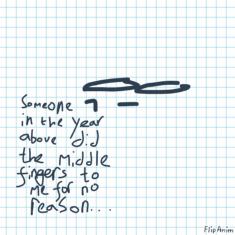 Someone
in the year
above did
the middle
fingers to
me for no
reason...
FlipAnim